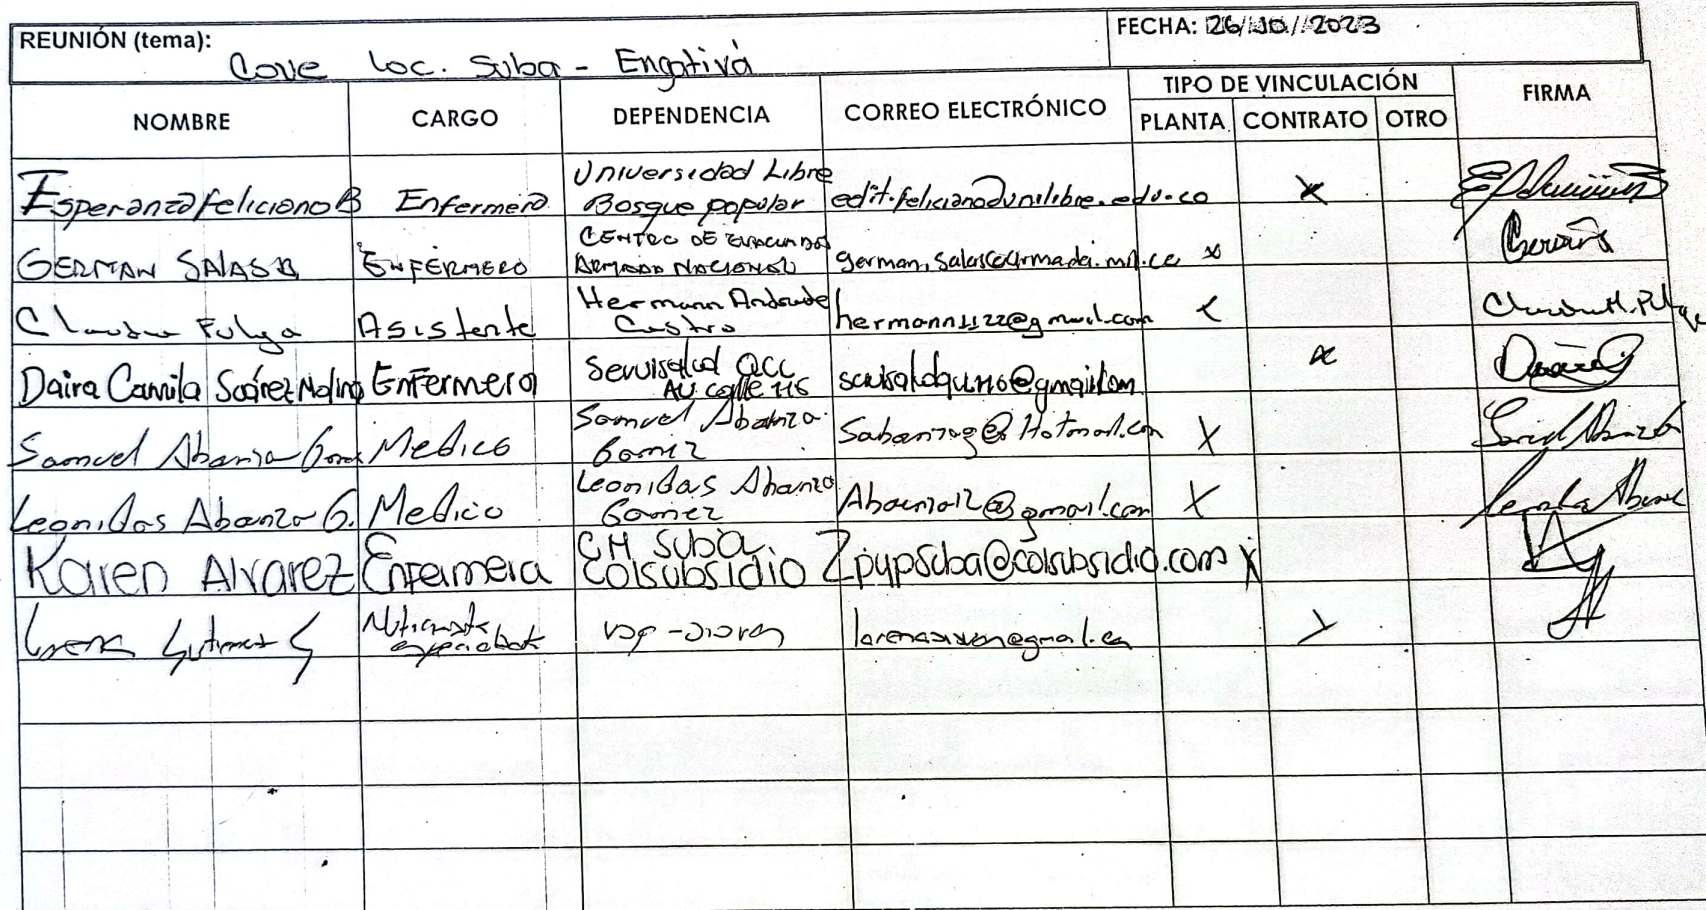 REUNIÓN (tema): Cove Loc. Suba - Engativá
FECHA: 26/10//2023
NOMBRE CARGO DEPENDENCIA CORREO ELECTRÓNICO TIPO DE VINCULACIÓN FIRMA
PLANTA CONTRATO OTRO
Esperanza feliciano B Enfermera Universidad Libre
Bosque popular edit.feliciano@unilibre.edu.co X
GERMAN SALAS B ENFERMERO CENTRO DE
ARMADA NACIONAL german.salas@armada.mil.co x
Claudia Pulga Asistente Hermann Andrade
Castro hermann1122@gmail.com
Daira Camila Suárez Molina Enfermera Servisalud QCL
AV calle 116 x
Samuel Abanza Gomez Medico Samuel Abanza
Gomez Sabanzag@Hotmail.com X
Leonidas Abanza G. Medico Leonidas Abanza
Gomez @gmail.com X
Karen Alvarez Enfermera CM Suba
Colsubsidio Zpypsuba@colsubsidio.com X
Lorena Gutierrez G Nutricionista